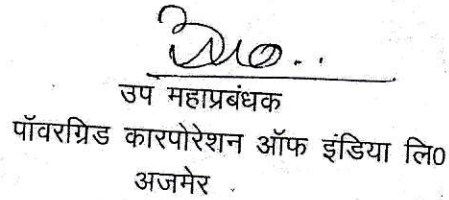 उप महाप्रबंधक
पॉवरग्रिड कारपोरेशन ऑफ इंडिया लि0
अजमेर